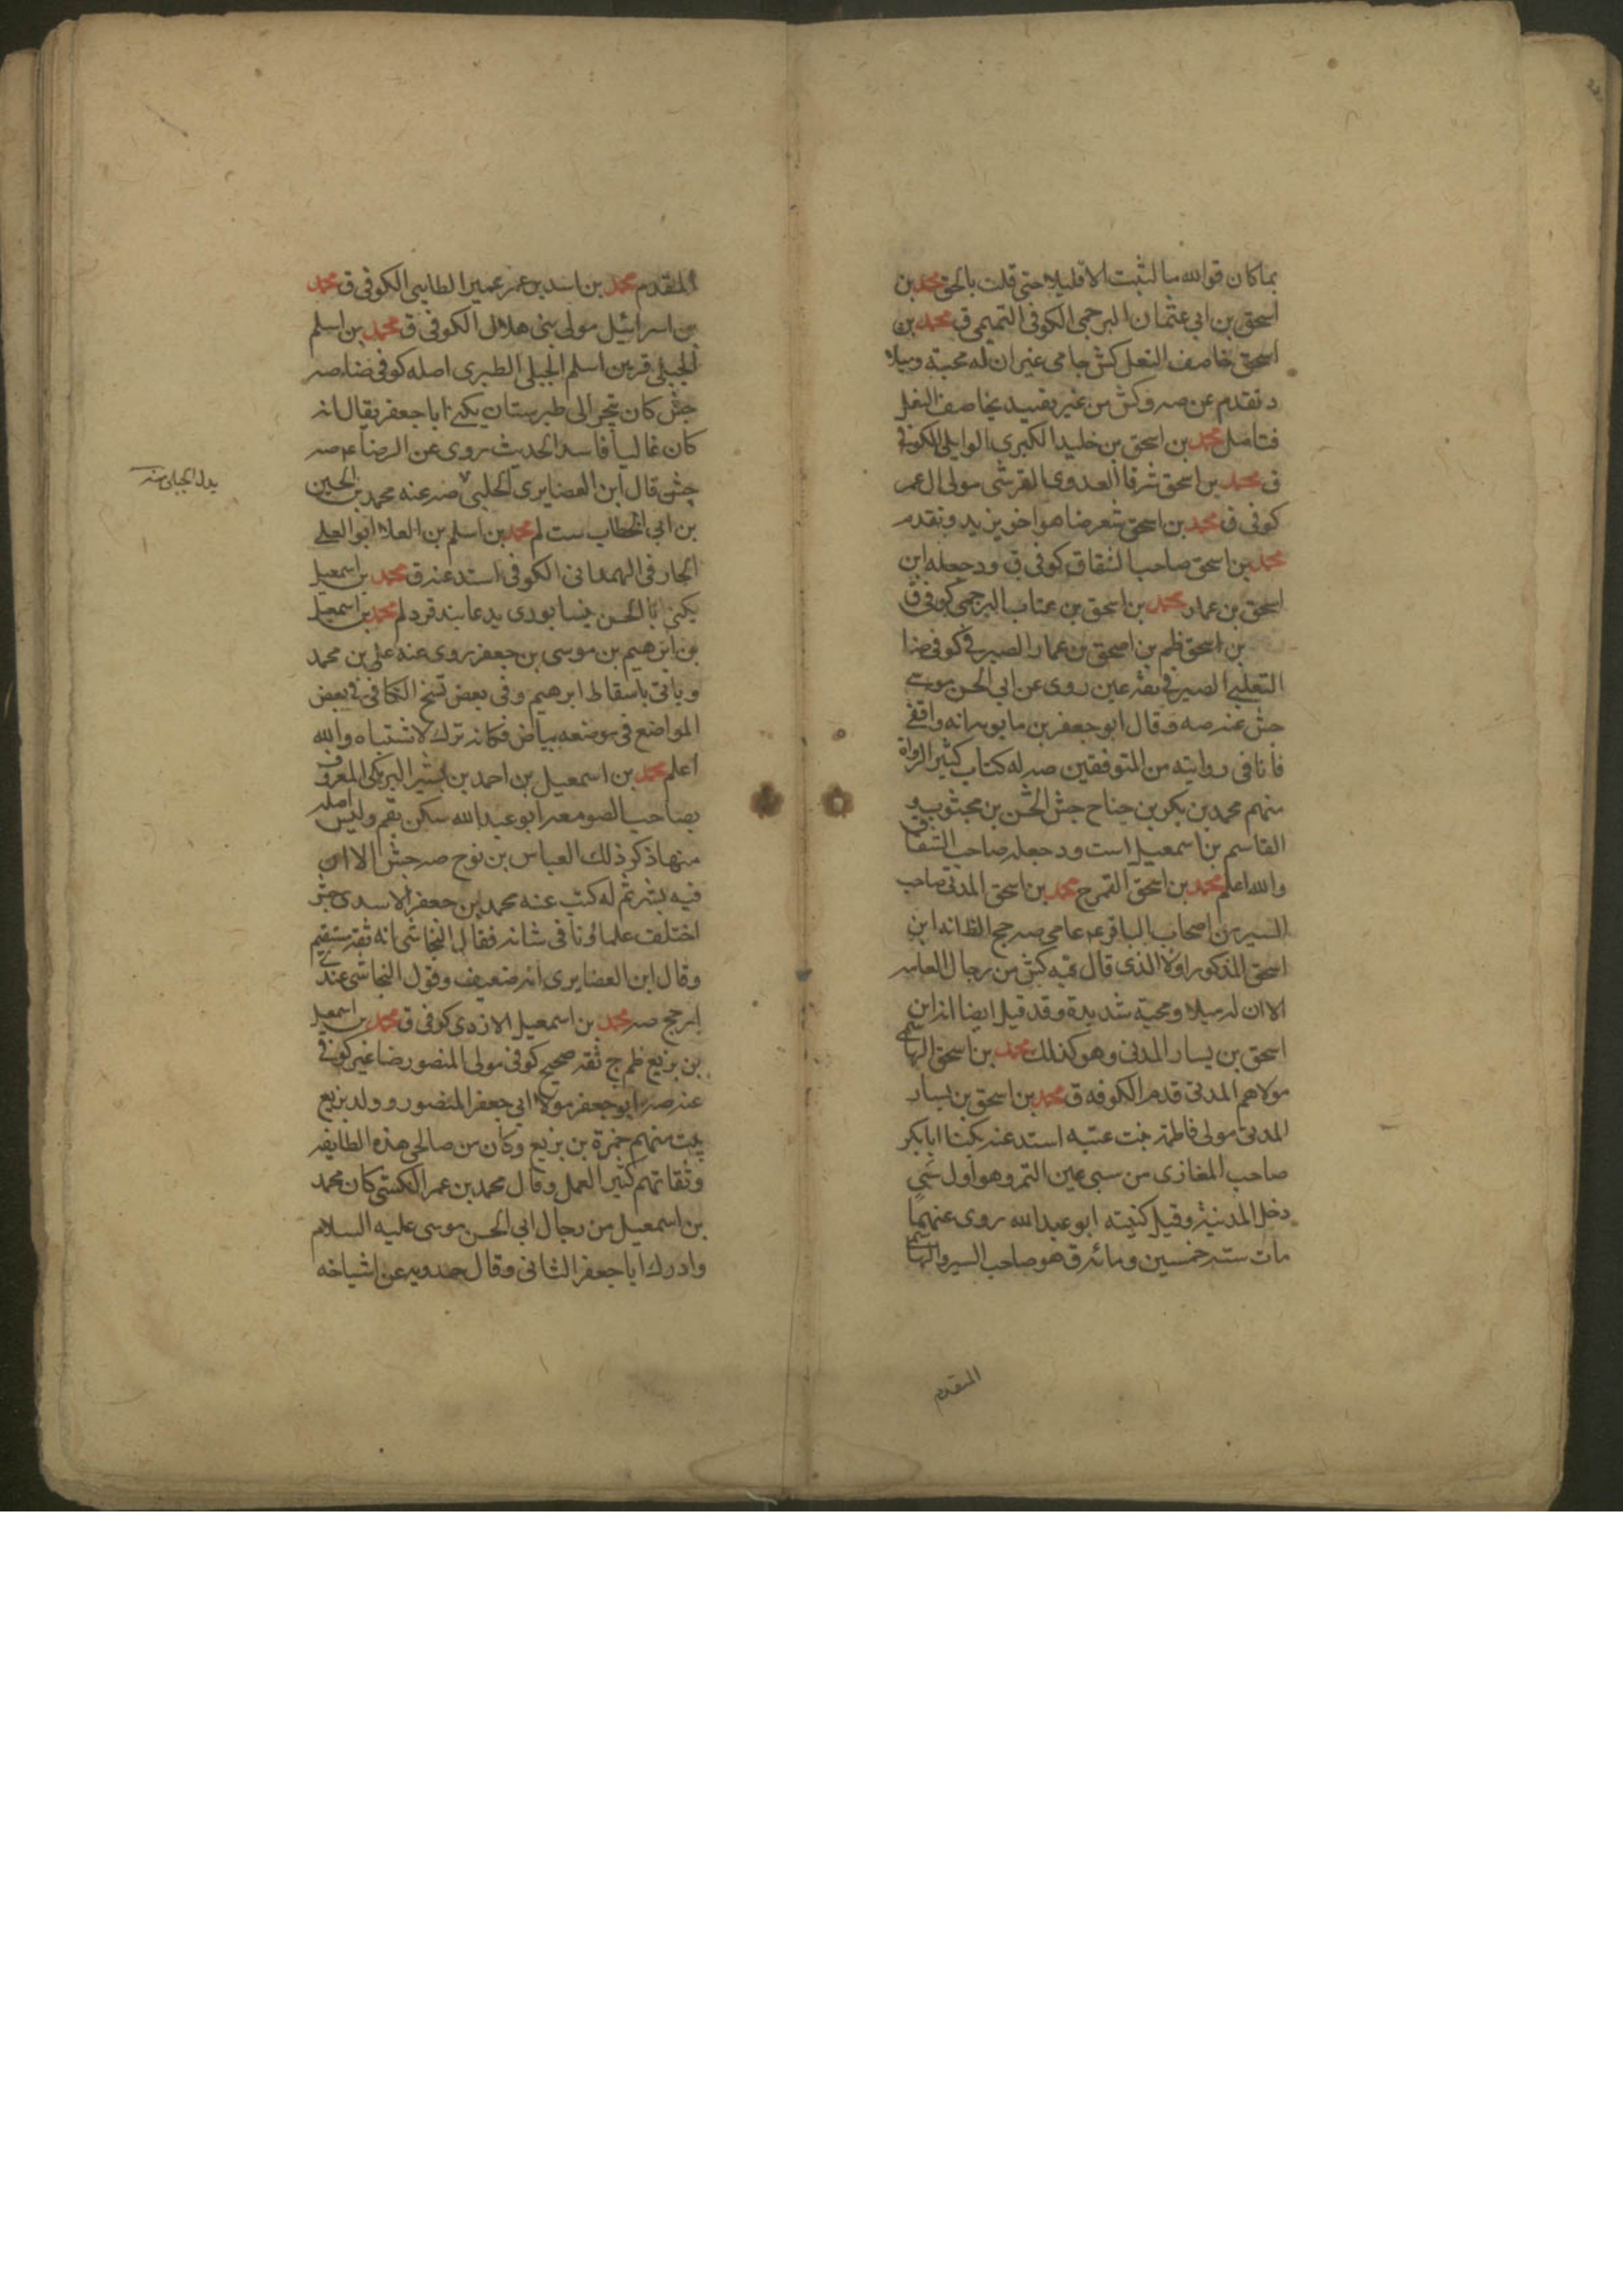 بما كان فوالله ما لبثت الا قليلا حتى قلت بالحق محمد بن
اسحق بن ابي عثمان البرجمي الكوفي التميمي ق محمد بن
اسحق خاصف النعل كش عامي غير ان له محبة وميلا
وتقدم عن صه وكش من غير تقييد بخاصف النعل
فتامل محمد بن اسحق بن خليد الكبرى الوابلي الكوفي
ق محمد بن اسحق شرفا العدوي القرشي مولى ال عمر
كوفي ق محمد بن اسحق شعر ضا هو اخو يزيد وتقدم
محمد بن اسحق صاحب الشقاق كوفي ق ود جعله ابن
اسحق بن عمار محمد بن اسحق بن عتاب البرجمي كوفي ق
بن اسحق ظم بن اسحق بن عمار الصيرفي كوفي ضا
التغلبي الصيرفي ثقة عين روى عن ابي الحسن موسى
جش عنه صه وقال ابو جعفر بن بابويه انه واقفي
فانا في روايته من المتوقفين صه له كتاب كثير الرواة
منهم محمد بن بكر بن جناح جش الحسن بن محبوب و
القاسم بن اسمعيل است ود جعله صاحب الشقاق
والله اعلم محمد بن اسحق القمي ج محمد بن اسحق المدني صاحب
السير من اصحاب الباقر ع عامي صه جح الظ انه ابن
اسحق المذكور اولا الذي قال فيه كش من رجال العامه
الا ان له ميلا ومحبة شديدة وقد قيل ايضا انه ابن
اسحق بن يسار المدني وهو كذلك محمد بن اسحق الهاشمي
مولاهم المدني قدم الكوفه ق محمد بن اسحق بن يسار
المدني مولى فاطمة بنت عتبه اسند عنه يكنا ابا بكر
صاحب المغازي من سبي عين التمر وهو اول سبي
دخل المدينة وقيل كنيته ابو عبد الله روى عنهما
مات سنه خمسين ومائه ق هو صاحب السير والهاشمي
المتقدم
المتقدم محمد بن اسد بن عمر عمير الطايي الكوفي ق محمد
بن اسرائيل مولى بني هلال الكوفي ق محمد بن اسلم
الجبلي قر بن اسلم الجبلي الطبري اصله كوفي ضا صه
جش كان يتجر الى طبرستان يكنى ابا جعفر يقال انه
كان غاليا فاسد الحديث روى عن الرضا ع صه
جش قال ابن الغضايري الحلبي صه عنه محمد بن الحسين
بن ابي الخطاب ست لم محمد بن اسلم بن العلا ابو العلى
الحارفي الهمداني الكوفي اسند عنه ق محمد بن اسمعيل
يكنى ابا الحسن نيسابوري يدعا بندفر د لم محمد بن اسمعيل
بن ابرهيم بن موسى بن جعفر روى عنه علي بن محمد
وياتي باسقاط ابرهيم وفي بعض نسخ الكافي في بعض
المواضع في موضعه بياض فكانه ترك لاشتباه والله
اعلم محمد بن اسمعيل بن احمد بن بشير البرمكي المعروف
بصاحب الصومعه ابو عبد الله سكن بقم وليس اصله
منها ذكر ذلك العباس بن نوح صه جش الا ان
فيه بشر ثم له كتب عنه محمد بن جعفر الاسدي جش
اختلف علماؤنا في شانه فقال النجاشي انه ثقة مستقيم
وقال ابن الغضايري انه ضعيف وقول النجاشي عندي
ارجح صه محمد بن اسمعيل الازدي كوفي ق محمد بن اسمعيل
بن بزيع ظم ج ثقة صحيح كوفي مولى المنصور ضا غير كوفي
عنه صه ابو جعفر مولا ابي جعفر المنصور وولد بزيع
بيت منهم حمزة بن بزيع وكان من صالحي هذه الطايفه
وثقاتهم كثير العمل وقال محمد بن عمر الكشي كان محمد
بن اسمعيل من رجال ابي الحسن موسى عليه السلام
وادرك ابا جعفر الثاني وقال حمدويه عن اشياخه
بدل الجبلي منه